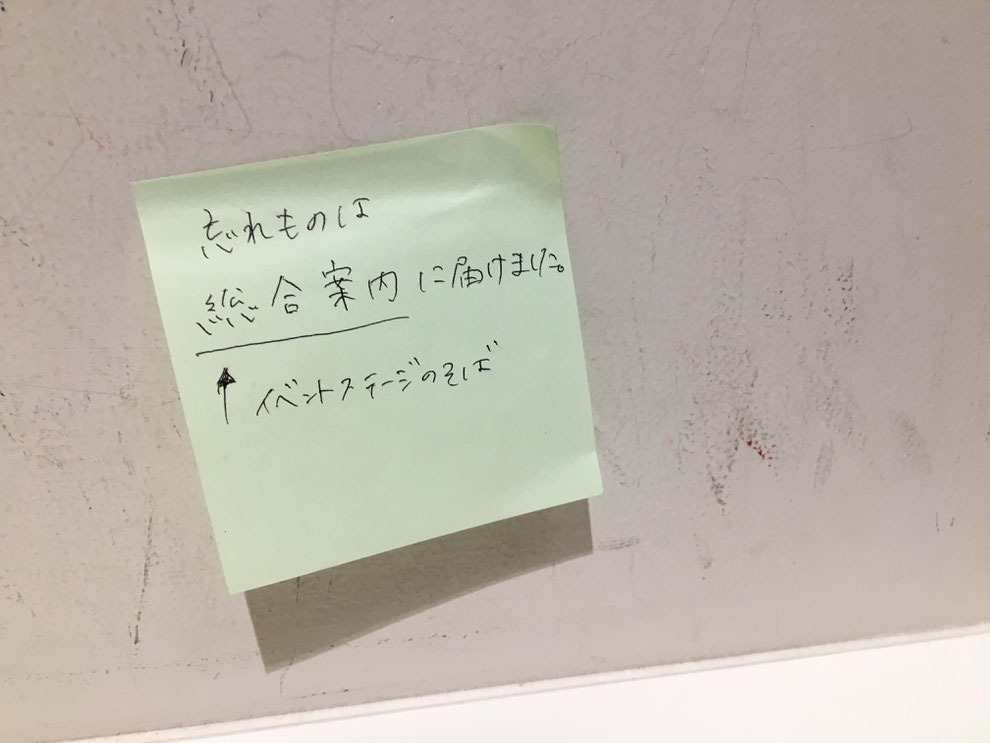 忘れものは
総合案内に届けました。
↑ イベントステージのそば